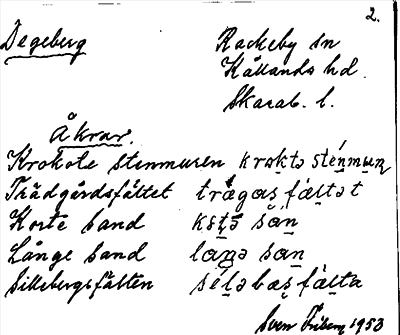 2.
Degeberg
Rackeby sn
Kållands hd.
Skarab. l.
Åkrar.
Krokote stenmuren krəktə sténmun
Trädgårdsfältet trägaş fältət
Korte sand kɛţə san
Långe sand laŋə san
Sillebergsfälten séləbaş fälta
Sven Friberg 1953